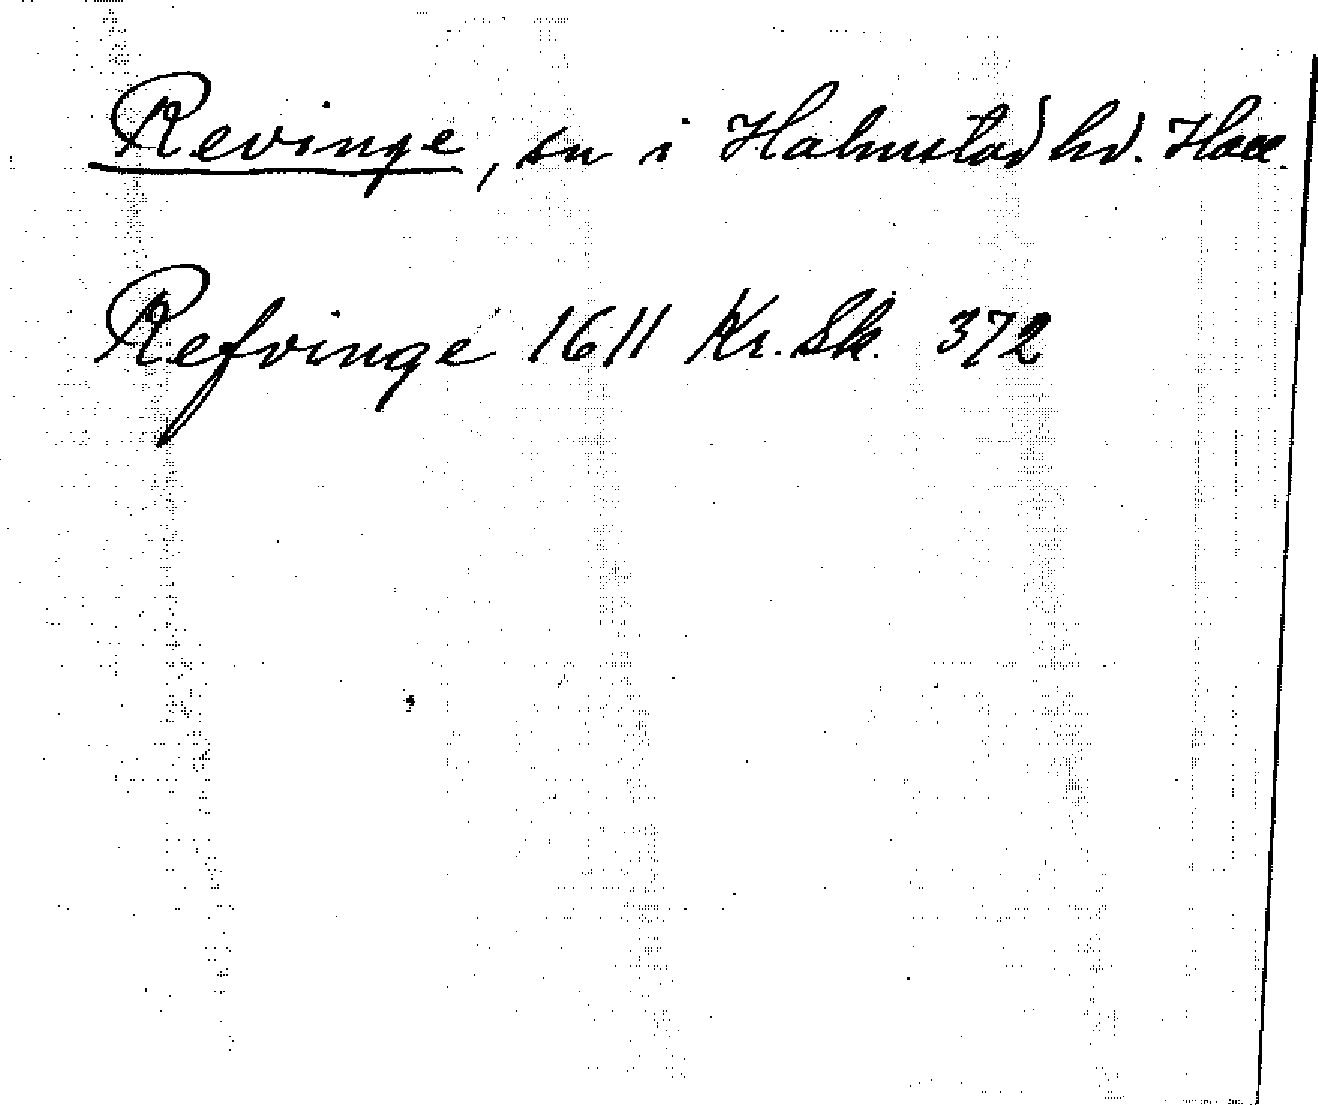 Revinge, sn i Halmstad hd. Hall.
Refvinge 1611 Kr. Sk. 372